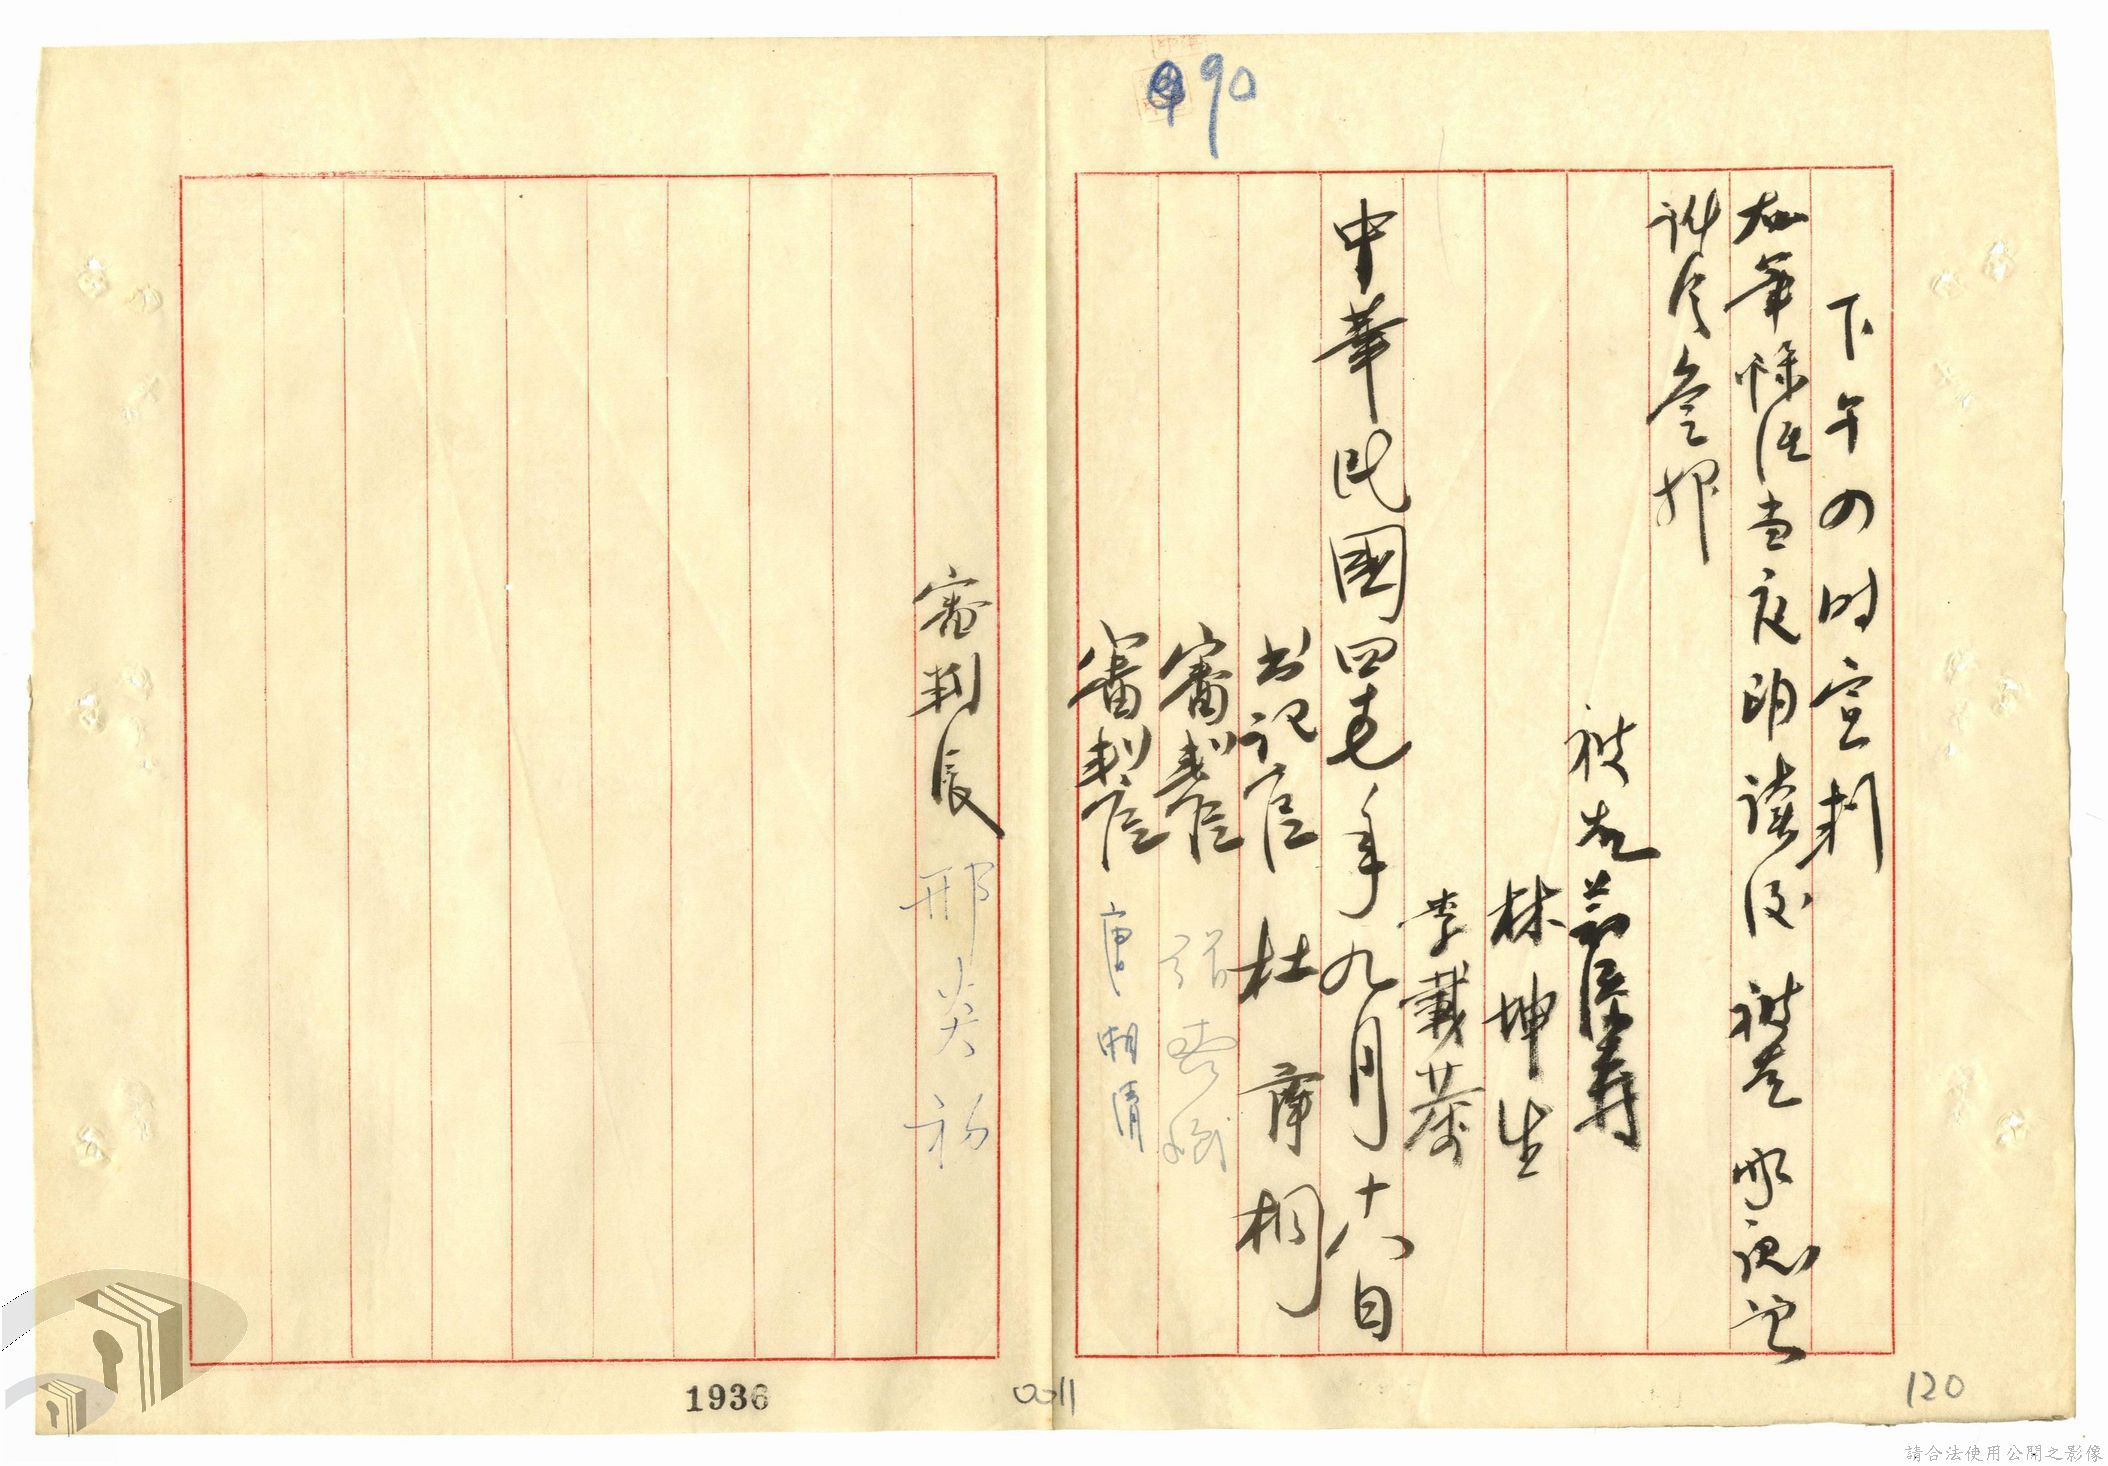 90
下午四时宣判
右筆錄經當庭朗讀後被告承認無
訛令簽押
被告
林坤生
李載恭
中華民國四十七年九月十六日
书记官 杜 桐
審判官
審判官 唐湘清
審判長 邢炎初
1936
0011
120
請合法使用公開之影像